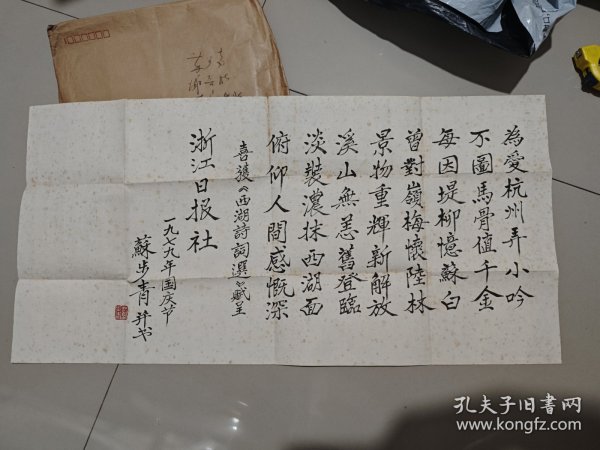 為愛杭州弄小吟
不圖馬骨值千金
每因堤柳憶蘇白
曾對嶺梅懷陸林
景物重輝新解放
溪山無恙舊登臨
淡裝濃抹西湖面
俯仰人間感慨深
喜獲《西湖詩詞選》賦呈
浙江日报社
一九七九年国庆节
蘇步青并书
孔夫子旧书网
www.kongfz.com